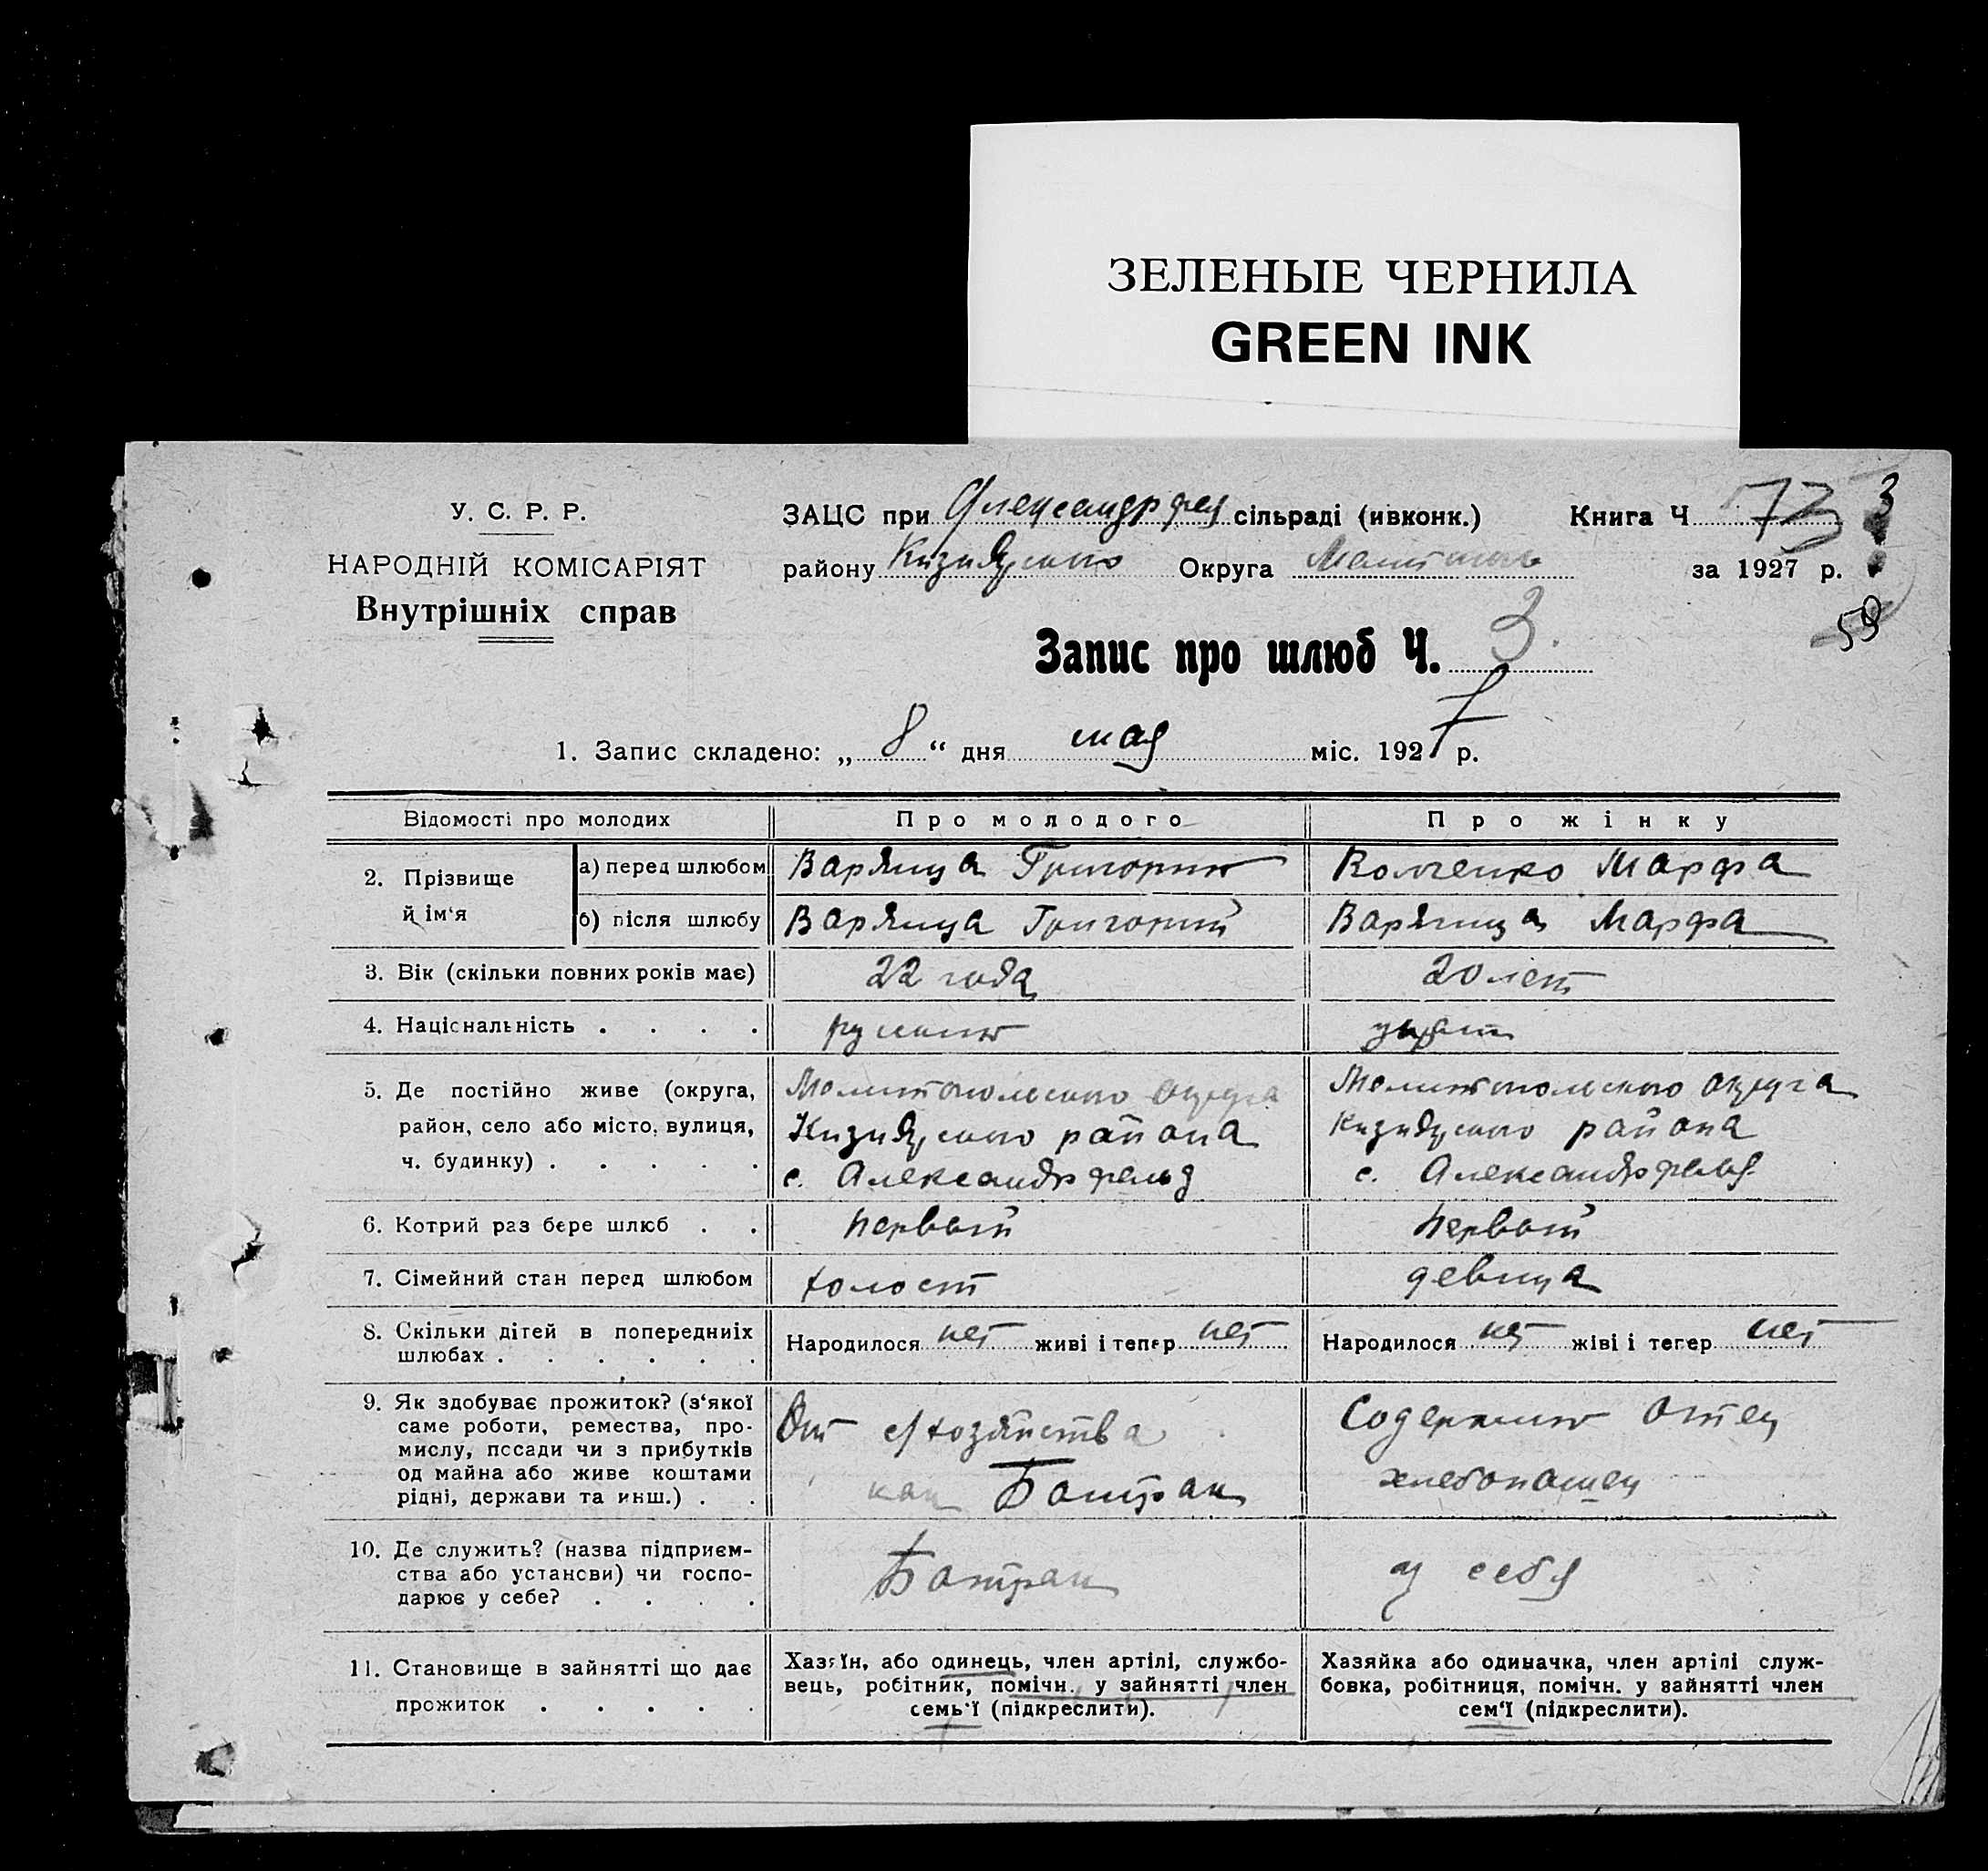 ЗЕЛЕНЫЕ ЧЕРНИЛА
GREEN INK
У. С. Р. Р.
НАРОДНІЙ КОМІСАРІЯТ
Внутрішніх справ
ЗАЦС при Александрфел сільраді (ивконк.) Книга Ч 73 3
району Кизиярского Округа за 1927 р.
59
Запис про шлюб Ч. 3.
1. Запис складено: „ 8 “ дня мая міс. 1927 р.
Відомості про молодих Про молодого Про жінку
2. Прізвище й ім‘я
а) перед шлюбом Варяница Григорий Волченко Марфа
б) після шлюбу Варяница Григорий Варяница Марфа
3. Вік (скільки повних років має) 22 года 20 лет
4. Націснальність . . . .
5. Де постійно живе (округа, район, село або місто, вулиця, ч. будинку) . . . . .
Мелитопольского округа
Кизиярского района
с. Александрфельд
Мелитопольского округа
Кизиярского района
с. Александрфельд
6. Котрий раз бере шлюб . . первый первый
7. Сімейний стан перед шлюбом холост девица
8. Скільки дітей в попередниіх шлюбах . . . . . .
Народилося нет живі і тепер нет
Народилося нет жіві і тегер нет
9. Як здобуває прожиток? (з‘якої саме роботи, ремества, промислу, пссади чи з прибутків од майна або живе коштами рідні, держави та инш.) . .
От с/хозяйства
как Батрак
Содержит отец
хлебопашец
10. Де служить? (назва підприємства або устансви) чи господарює у себе? . . . .
Батрак
у себя
11. Становище в зайнятті що дає прожиток . . . . .
Хазяїн, або одинець, член артілі, службо-
вець, робітник, помічн. у зайнятті член
семь‘ї (підкреслити).
Хазяйка або одиначка, член артілі служ-
бовка, робітниця, помічн. у зайнятті член
сем‘ї (підкреслити).